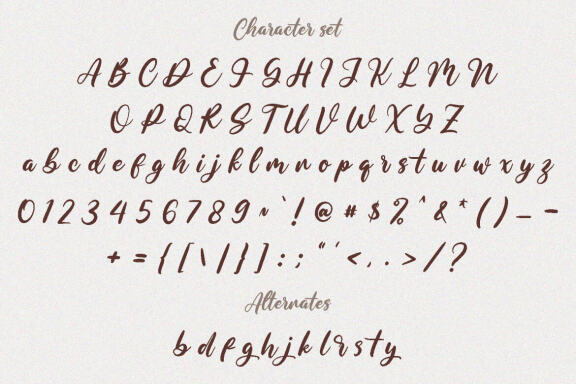 Character set
A B C D E F G H I J K L M N
O P Q R S T U V W X Y Z
a b c d e f g h i j k l m n o p q r s t u v w x y z
0 1 2 3 4 5 6 7 8 9 ~ ` ! @ # $ % ^ & * ( ) _ -
+ = { [ \ | } ] : ; " ' < , . > / ?
Alternates
b d f g h j k l r s t y